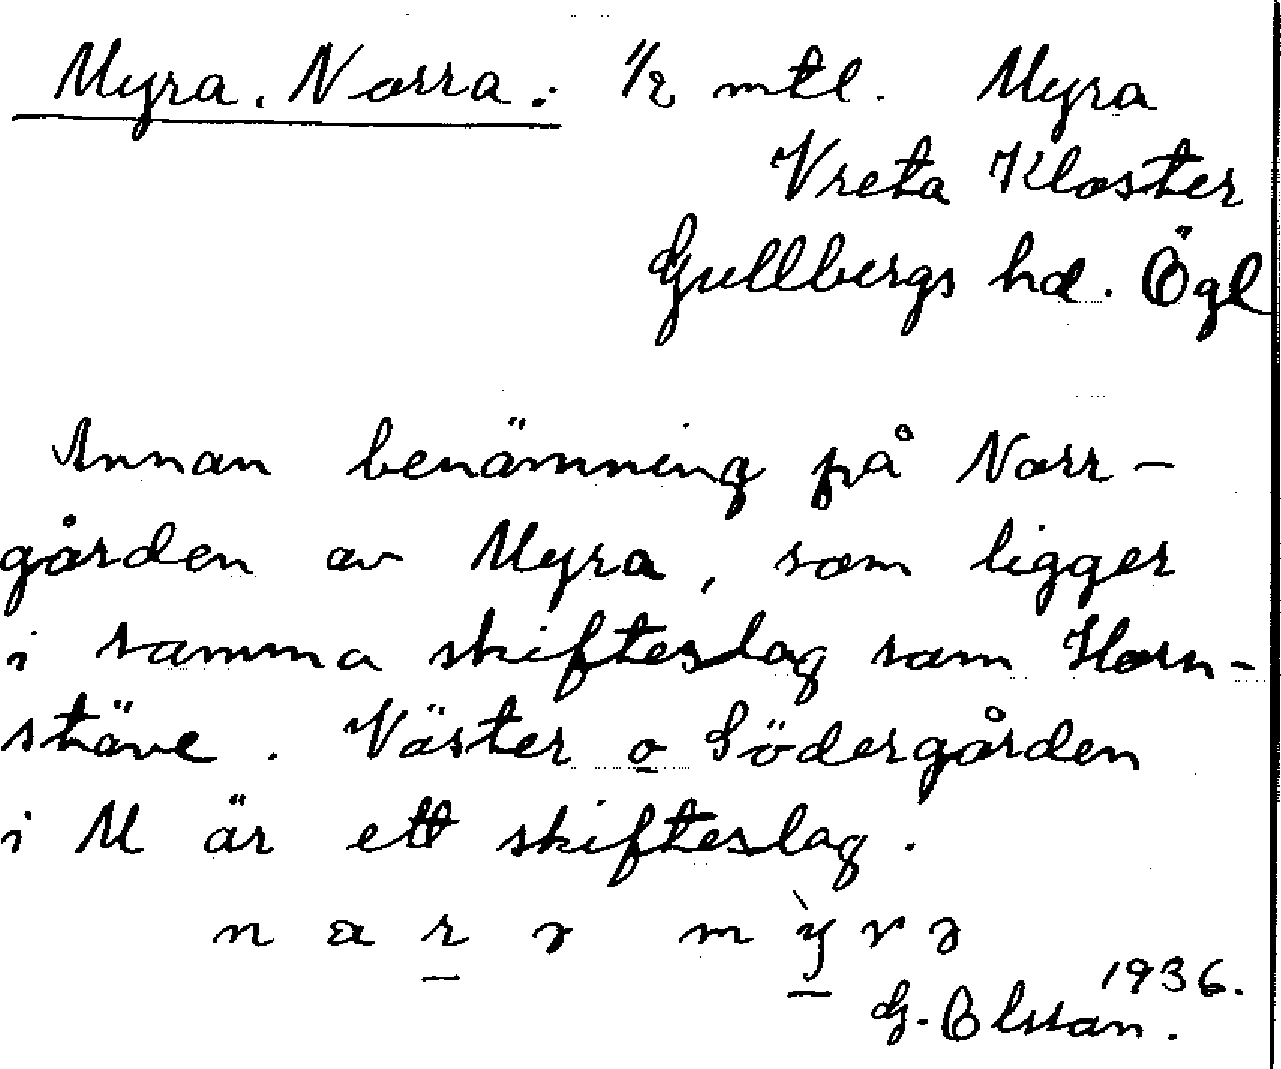 Myra, Norra: 1/2 mtl. Myra
Vreta Kloster
Gullbergs hd. Ögl
Annan benämning på Norr-
gården av Myra, som ligger
i samma skifteslag som Horn-
stäve. Väster o Södergården
i M är ett skifteslag.
1936.
G. Olsson.